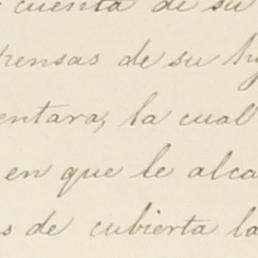 cuenta de su
pensas de su hy
entara, la cual
en que le alca
s de cubierta la